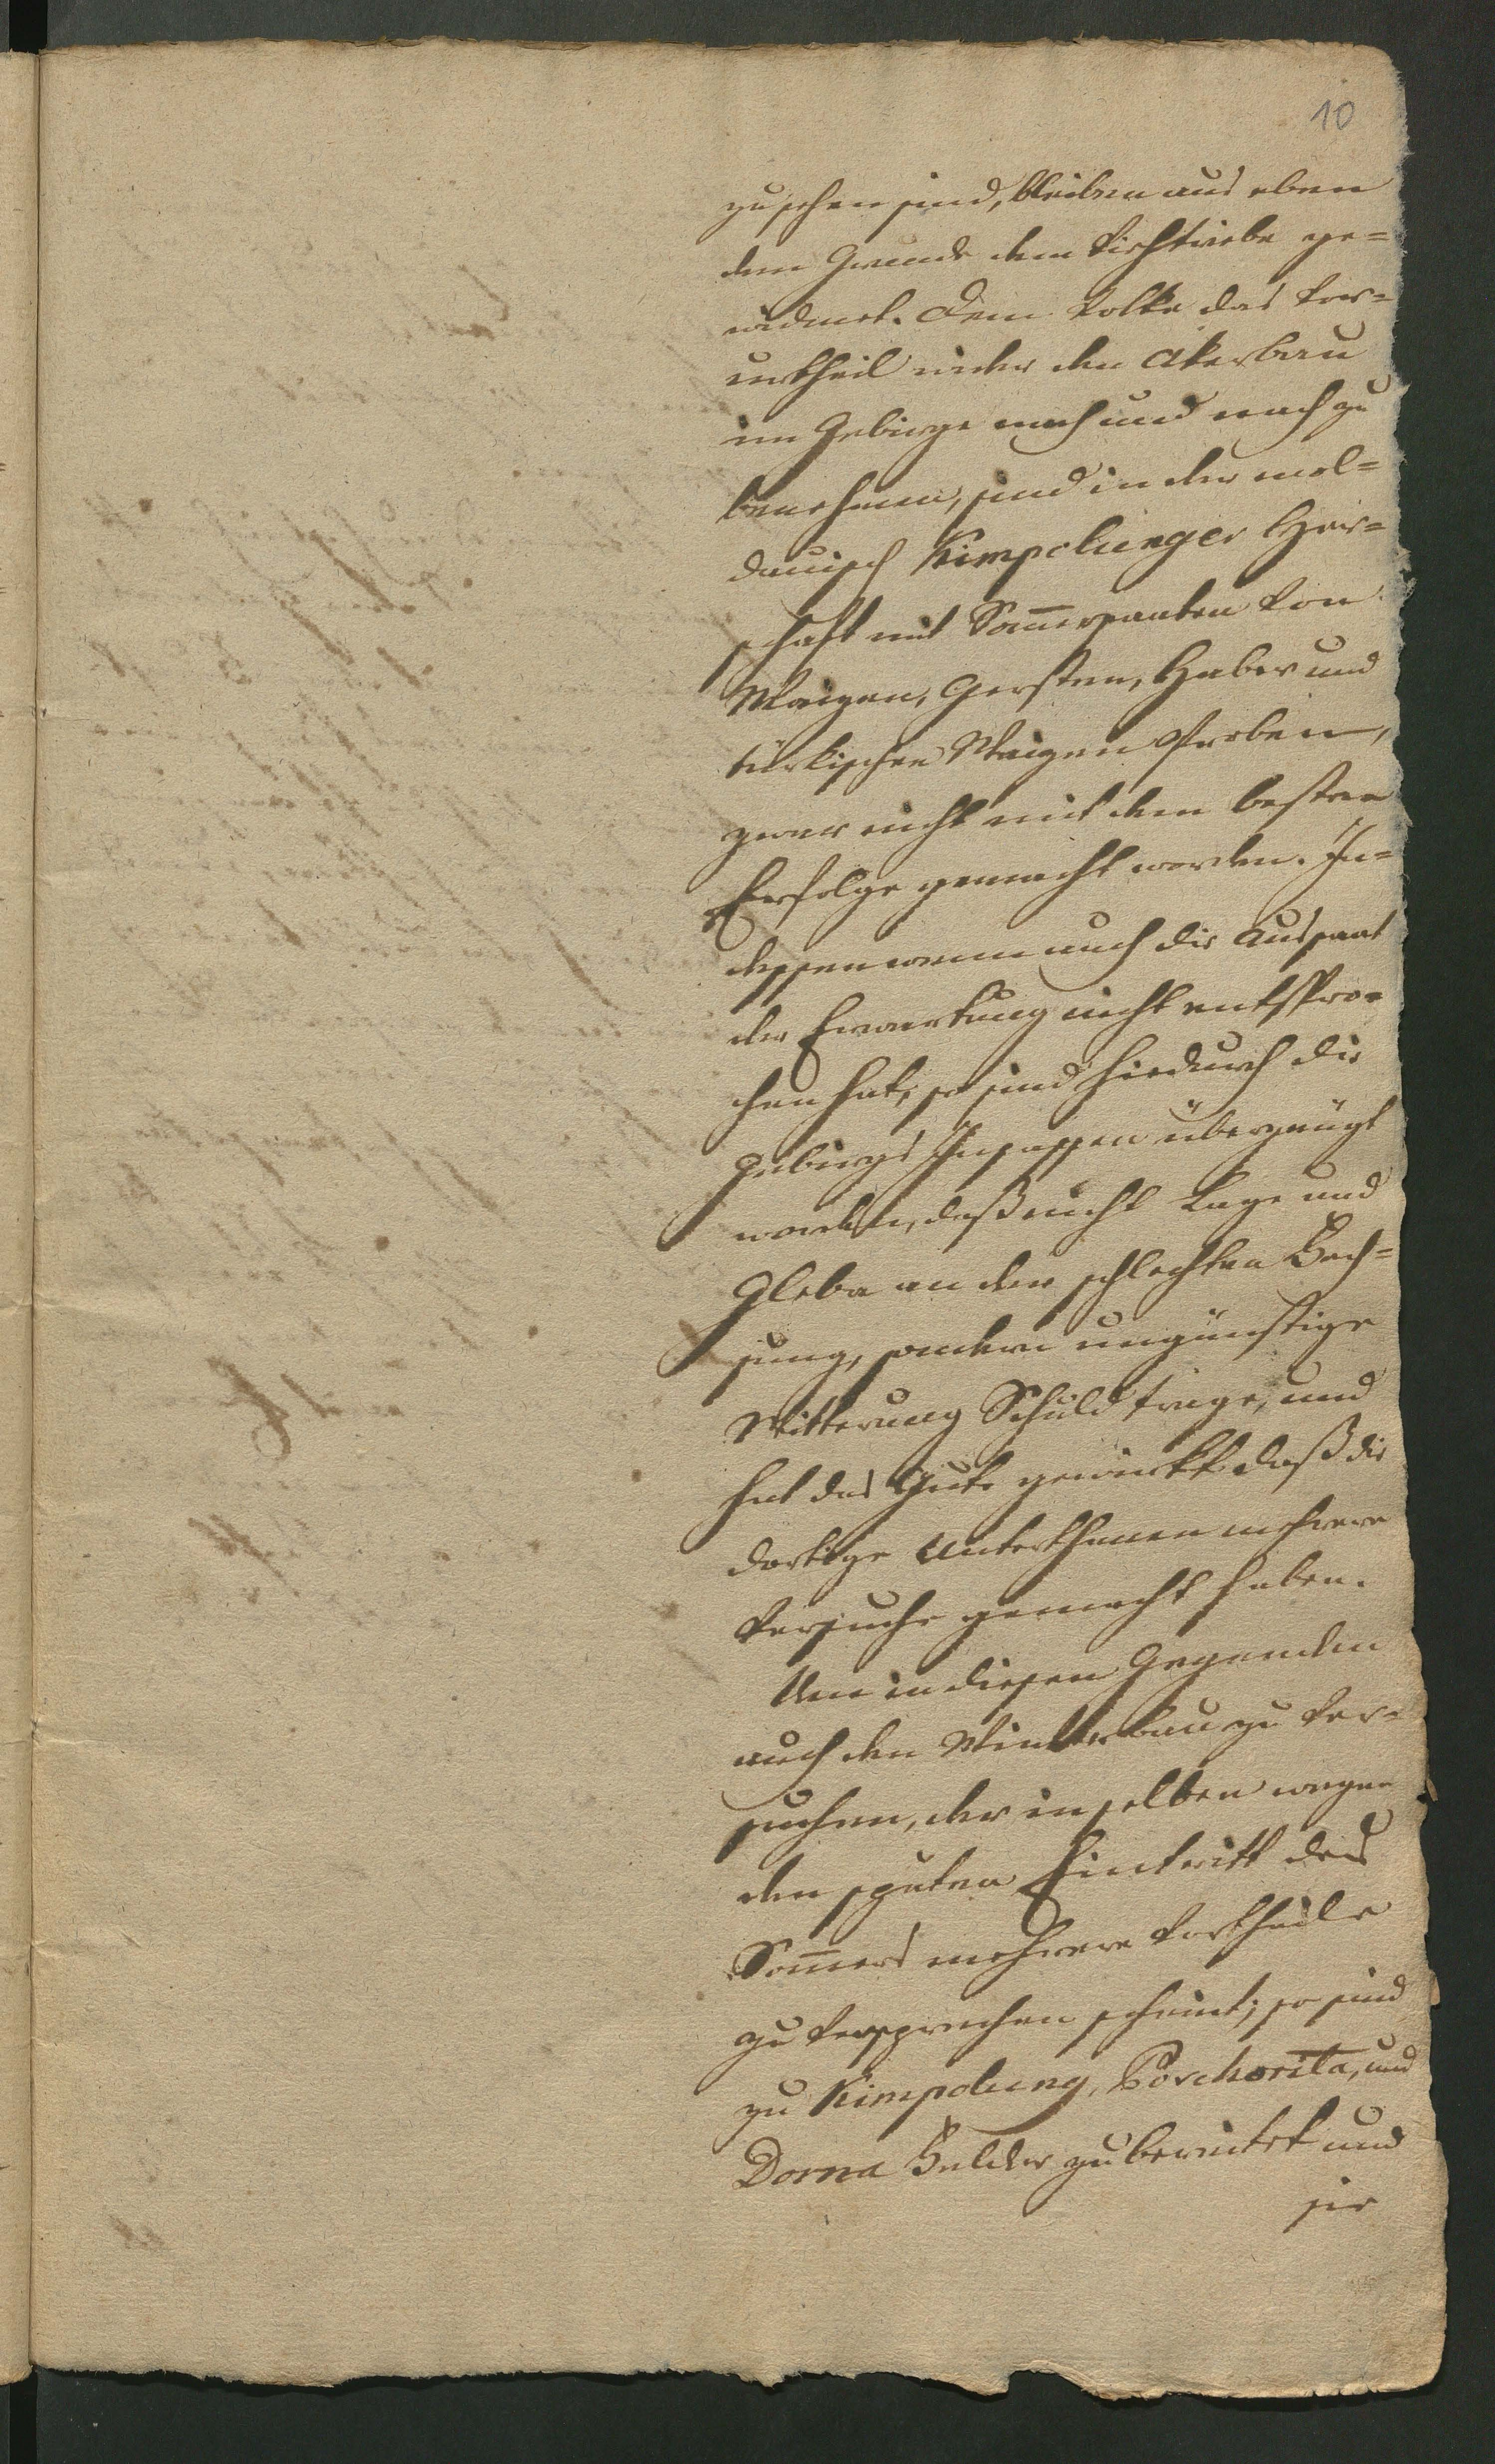 10
zusehen sind, bleiben aus eben
dem Grunde dem Viehtriebe ge=
widmet. Dem Volke das Vor=
urtheil wider den Akerbau
im Gebirge nach und nach zu
benehmen, sind in der mol=
dauisch Kimpolunger Herr=
schaft mit Sommersaaten von
Waizen, Gersten, Haber und
türkischen Waizen Proben,
zwar nicht mit dem besten
Erfolge gemacht worden. In=
dessen wenn auch die Aussaat
der Erwartung nicht entspro=
chen hat, so sind hiedurch die
Gebirgs Insassen überzeugt
worden, daß nicht Lage und
Gleba an der schlechten Fech=
sung, sondern ungünstige
Witterung Schuld trage, und
hat das Gute gewirkt daß die
dortige Unterthanen mehrere
Versuche gemacht haben.
Um in diesen Gegenden
auch den Winterbau zu ver=
suchen, der in selben wegen
den späten Eintritt des
Sommers mehrere Vortheile
zu versprechen scheint; so sind
zu Kimpolung, Poschorita, und
Dorna Felder zubereitet und
sie